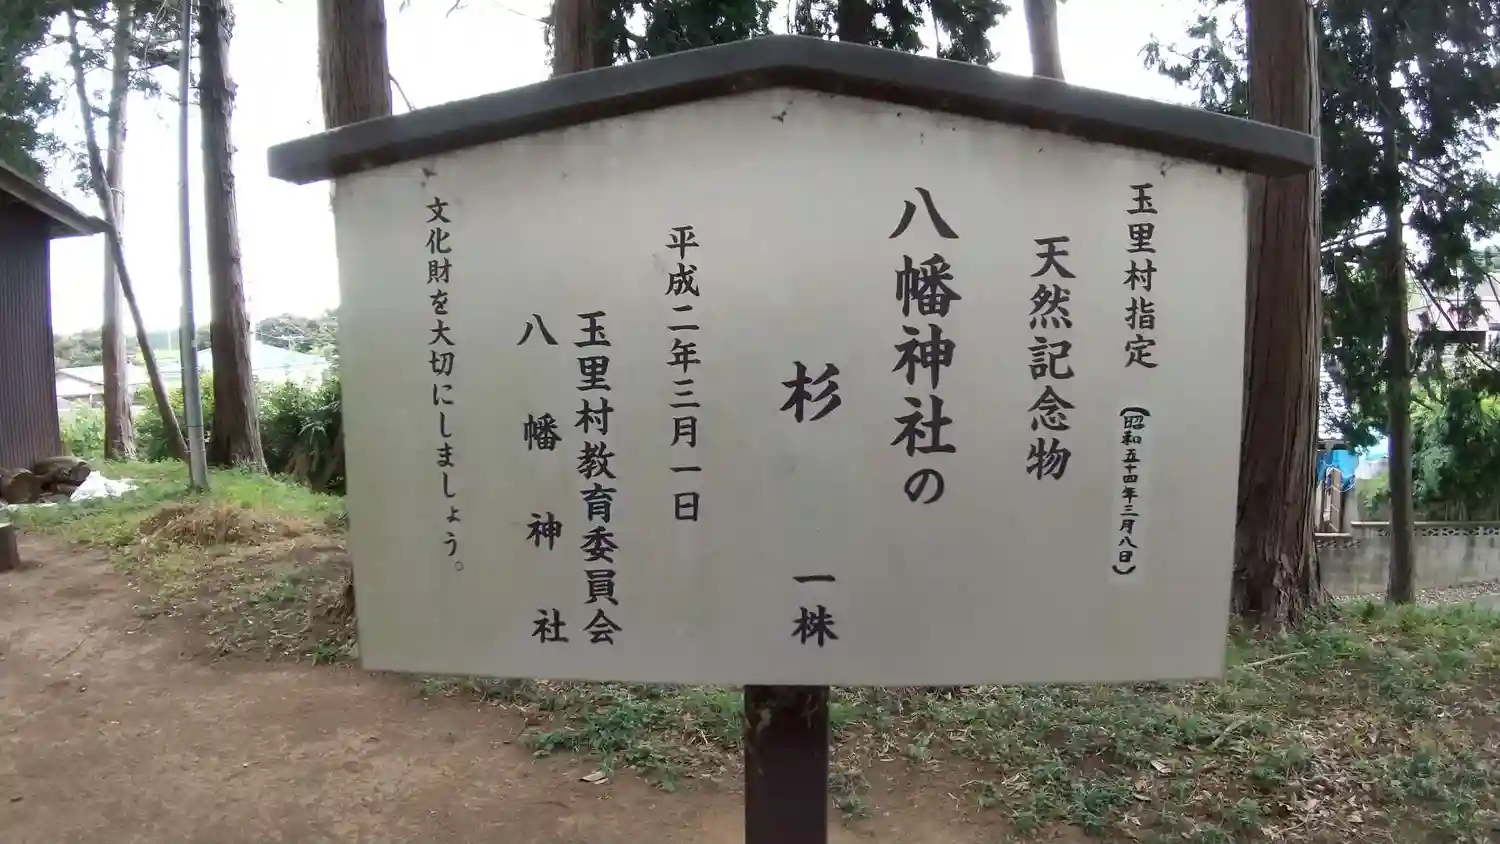 玉里村指定(昭和五十四年三月八日)
天然記念物
八幡神社の
杉 一株
平成二年三月一日
玉里村教育委員会
八幡神社
文化財を大切にしましょう。